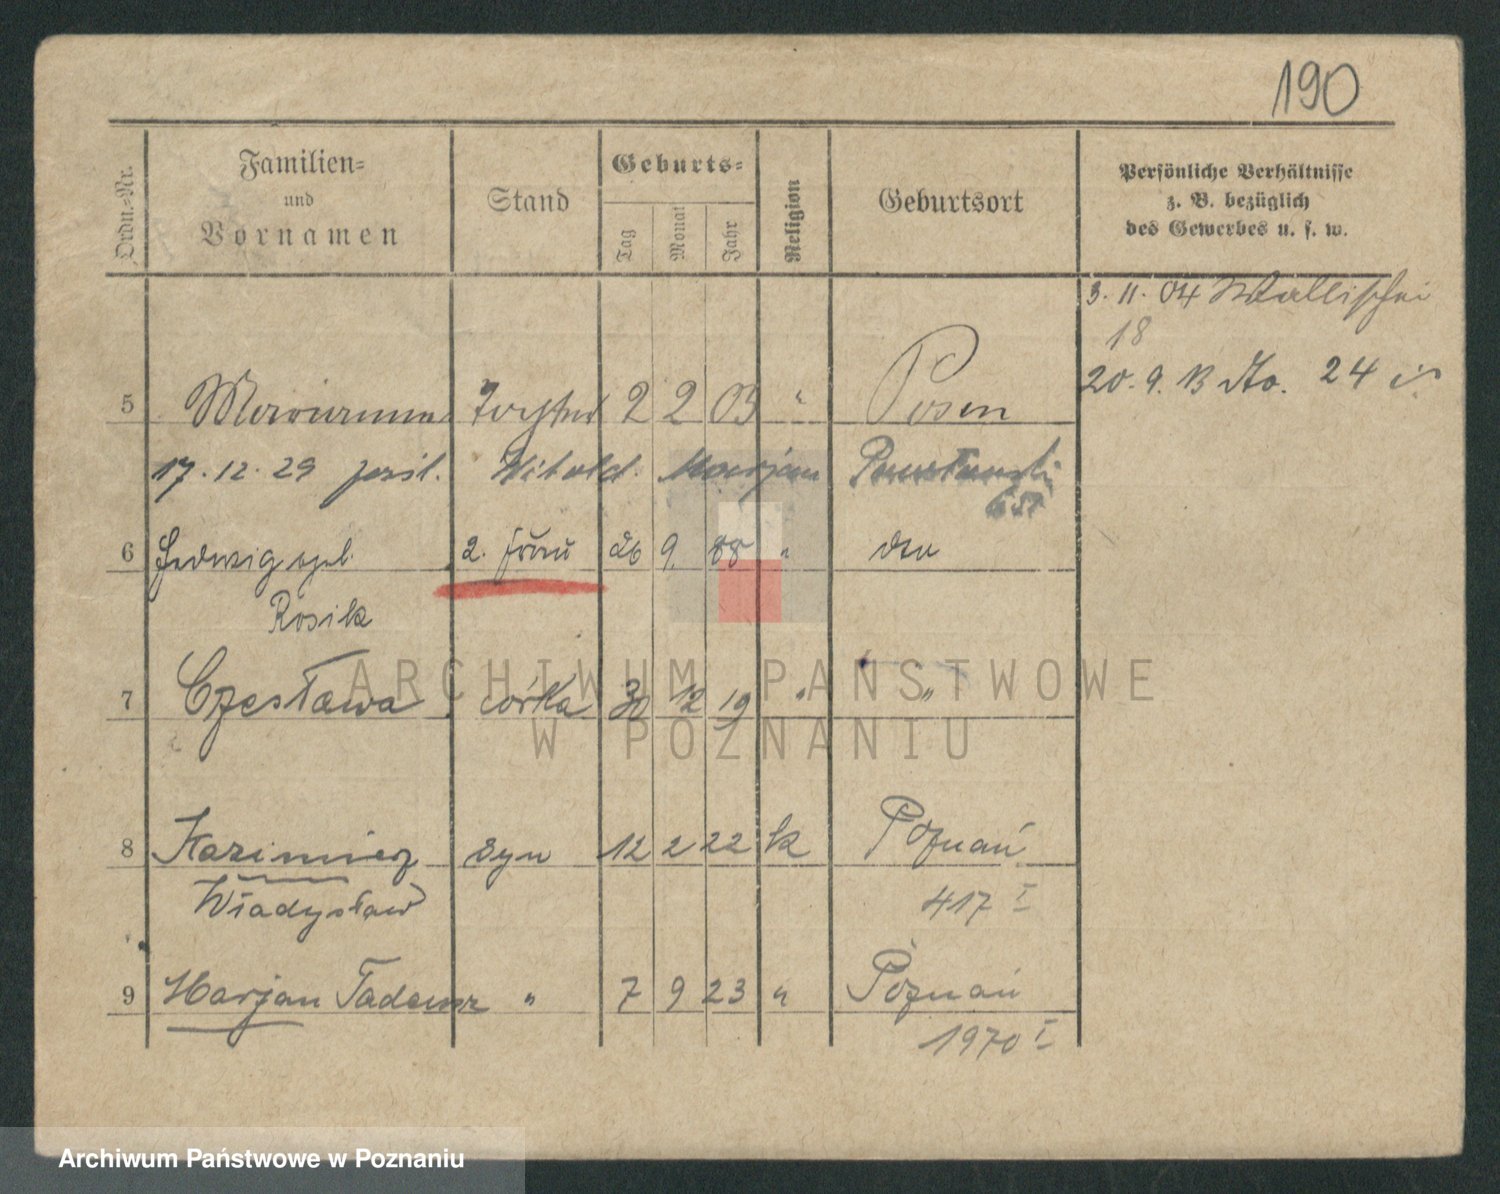 190
Ordn.-Nr.
Familien-
und
Vornamen
Stand
Geburts-
Tag
Monat
Jahr
Religion
Geburtsort
Persönliche Verhältnisse
z. B. bezüglich
des Gewerbes u. s. w.
3. 11. 04 Wallischei
18
20. 9. 13 dto. 24
5 Marianna Tochter 2 2 05 " Posen
17. 12. 29 Witold Marjan
6 Hedwig 2. Frau 26 9. 88 " dto
Rosik
7 Czesława córka 30 12 19 " "
8 Kazimierz syn 12 2 22 k Poznań
Władysław 417 I
9 Marjan Tadeusz " 7 9 23 " Poznań
1970 I
ARCHIWUM PAŃSTWOWE
W POZNANIU
Archiwum Państwowe w Poznaniu